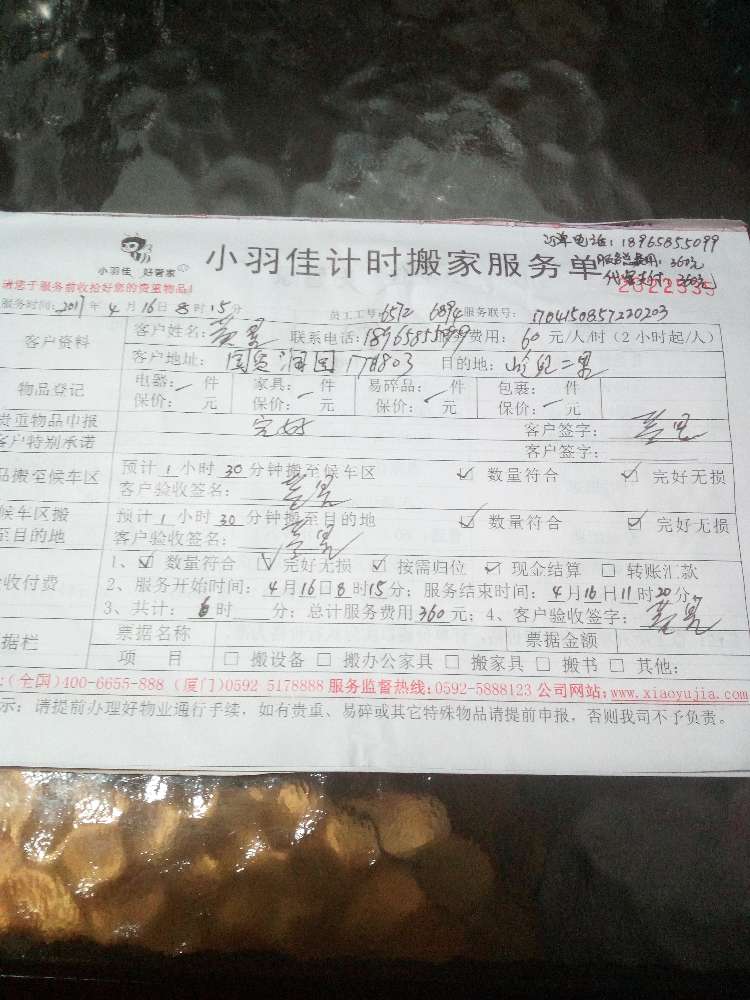 订单电话：18965855099
小羽佳 好管家
小羽佳计时搬家服务单
服务总费用：360元
2022335
请您于服务前收拾好您的贵重物品！
服务时间：2017年4月16日8时15分 员工工号：6572 6894 服务联号：1704150857220203
客户资料
客户姓名： 联系电话：18965855099 服务费用：60元/人/时（2小时起/人）
客户地址： 目的地：
物品登记
电器： 件 家具： 件 易碎品： 件 包裹： 件
保价： 元 保价： 元 保价： 元 保价： 元
贵重物品申报 完好 客户签字：
客户特别承诺 客户签字：
品搬至候车区 预计1小时30分钟搬至候车区 ☑ 数量符合 ☑ 完好无损
客户验收签名：
候车区搬至目的地 预计1小时30分钟搬至目的地 ☑ 数量符合 ☑ 完好无损
客户验收签名：
收付费
1、☑ 数量符合 ☑ 完好无损 ☑ 按需归位 ☑ 现金结算 □ 转账汇款
2、服务开始时间：4月16日8时15分；服务结束时间：4月16日11时20分；
3、共计：6时 分；总计服务费用360元；4、客户验收签字：
据栏
票据名称 票据金额
项 目 □ 搬设备 □ 搬办公家具 □ 搬家具 □ 搬书 □ 其他：
：(全国)400-6655-888 (厦门)0592 5178888 服务监督热线：0592-5888123 公司网站：www.xiaoyujia.com
示：请提前办理好物业通行手续，如有贵重、易碎或其它特殊物品请提前申报，否则我司不予负责。